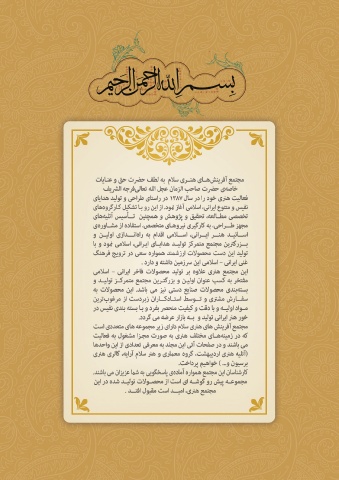 بسم الله الرحمن الرحیم
مجتمع آفرینش‌های هنری سلام به لطف حضرت حق و عنایات
خاصه‌ی حضرت صاحب الزمان عجل الله تعالی فرجه الشریف
فعالیت هنری خود را در سال ۱۳۸۷ در راستای طراحی و تولید هدایای
نفیس و متنوع ایرانی، اسلامی آغاز نمود. از این رو با تشکیل کارگروه‌های
تخصصی مطالعه، تحقیق و پژوهش و همچنین تأسیس آتلیه‌های
مجهز طراحی، به کارگیری نیروهای متخصص، استفاده از مشاوره‌ی
اساتید هنر ایرانی، اسلامی اقدام به راه‌اندازی اولین و
بزرگترین مجتمع متمرکز تولید هدایای ایرانی، اسلامی نمود و با
تولید این دست محصولات ارزشمند همواره سعی در ترویج فرهنگ
غنی ایرانی - اسلامی این سرزمین داشته و دارد.
این مجتمع هنری علاوه بر تولید محصولات فاخر ایرانی - اسلامی
مفتخر به کسب عنوان اولین و بزرگترین مجتمع متمرکز تولید و
بسته‌بندی محصولات صنایع دستی نیز می باشد. این محصولات به
سفارش مشتری و توسط استادکاران زبردست از مرغوب‌ترین
مواد اولیه و با دقت و کیفیت منحصر بفرد و با بسته بندی نفیس در
خور هنر ایرانی تولید و به بازار عرضه می گردد.
مجتمع آفرینش های هنری سلام دارای زیر مجموعه های متعددی است
که در زمینه‌های مختلف هنری به صورت مجزا مشغول به فعالیت
می باشند و در صفحات آتی این مجلد به معرفی تعدادی از این واحدها
(آتلیه هنری اردیبهشت، گروه معماری و هنر سلام آرایه، گالری هنری
پرسیون و...) خواهیم پرداخت.
کارشناسان این مجتمع همواره آماده‌ی پاسخگویی به شما عزیزان می باشند.
مجموعه پیش رو گوشه ای است از محصولات تولید شده در این
مجتمع هنری، امید است مقبول افتد.